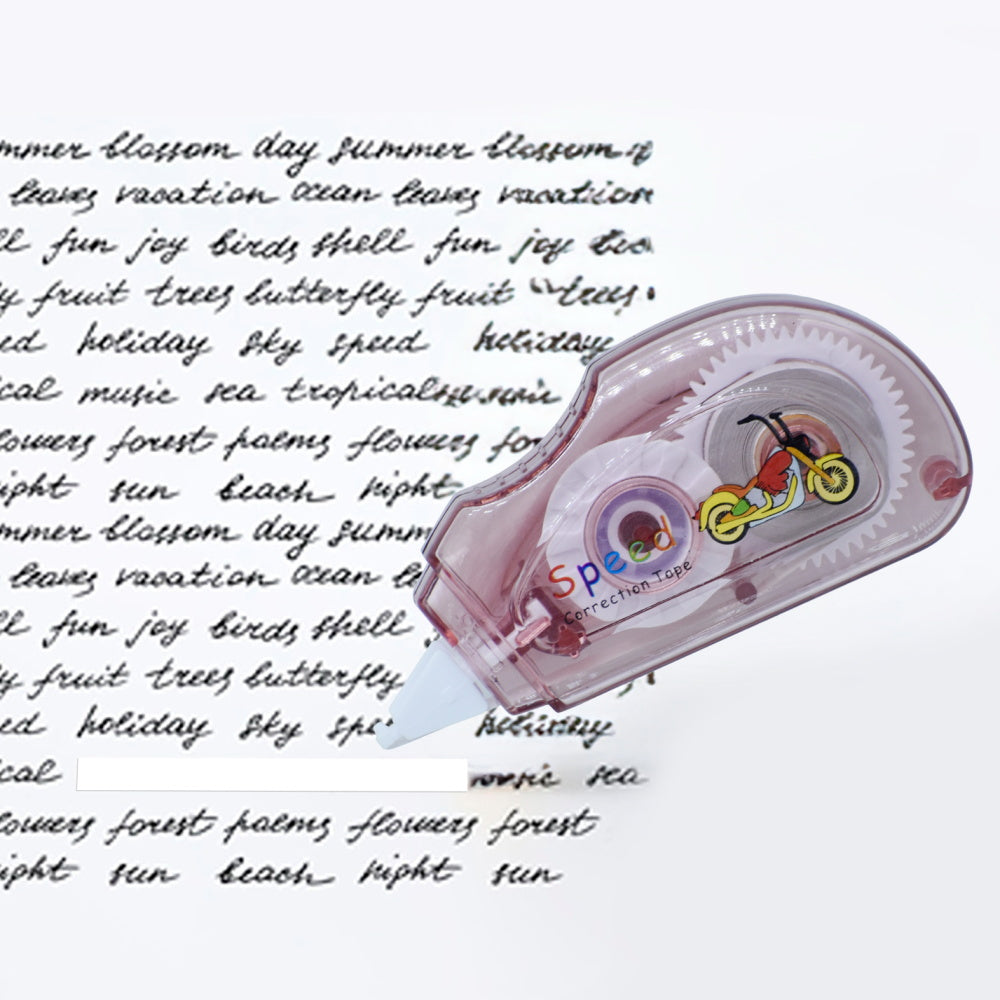 mmer blossom day summer blossom
leaves vacation ocean leaves vacation
ll fun joy birds shell fun joy
y fruit trees butterfly fruit trees
ed holiday sky speed holiday
ical music sea tropical music
lowers forest palms flowers for
ight sun beach night
mmer blossom day summ
leaves vacation ocean le
ll fun joy birds shell
y fruit trees butterfly
ed holiday sky spe holiday
ical music sea
lowers forest palms flowers forest
ight sun beach night sun
Speed
Correction Tape